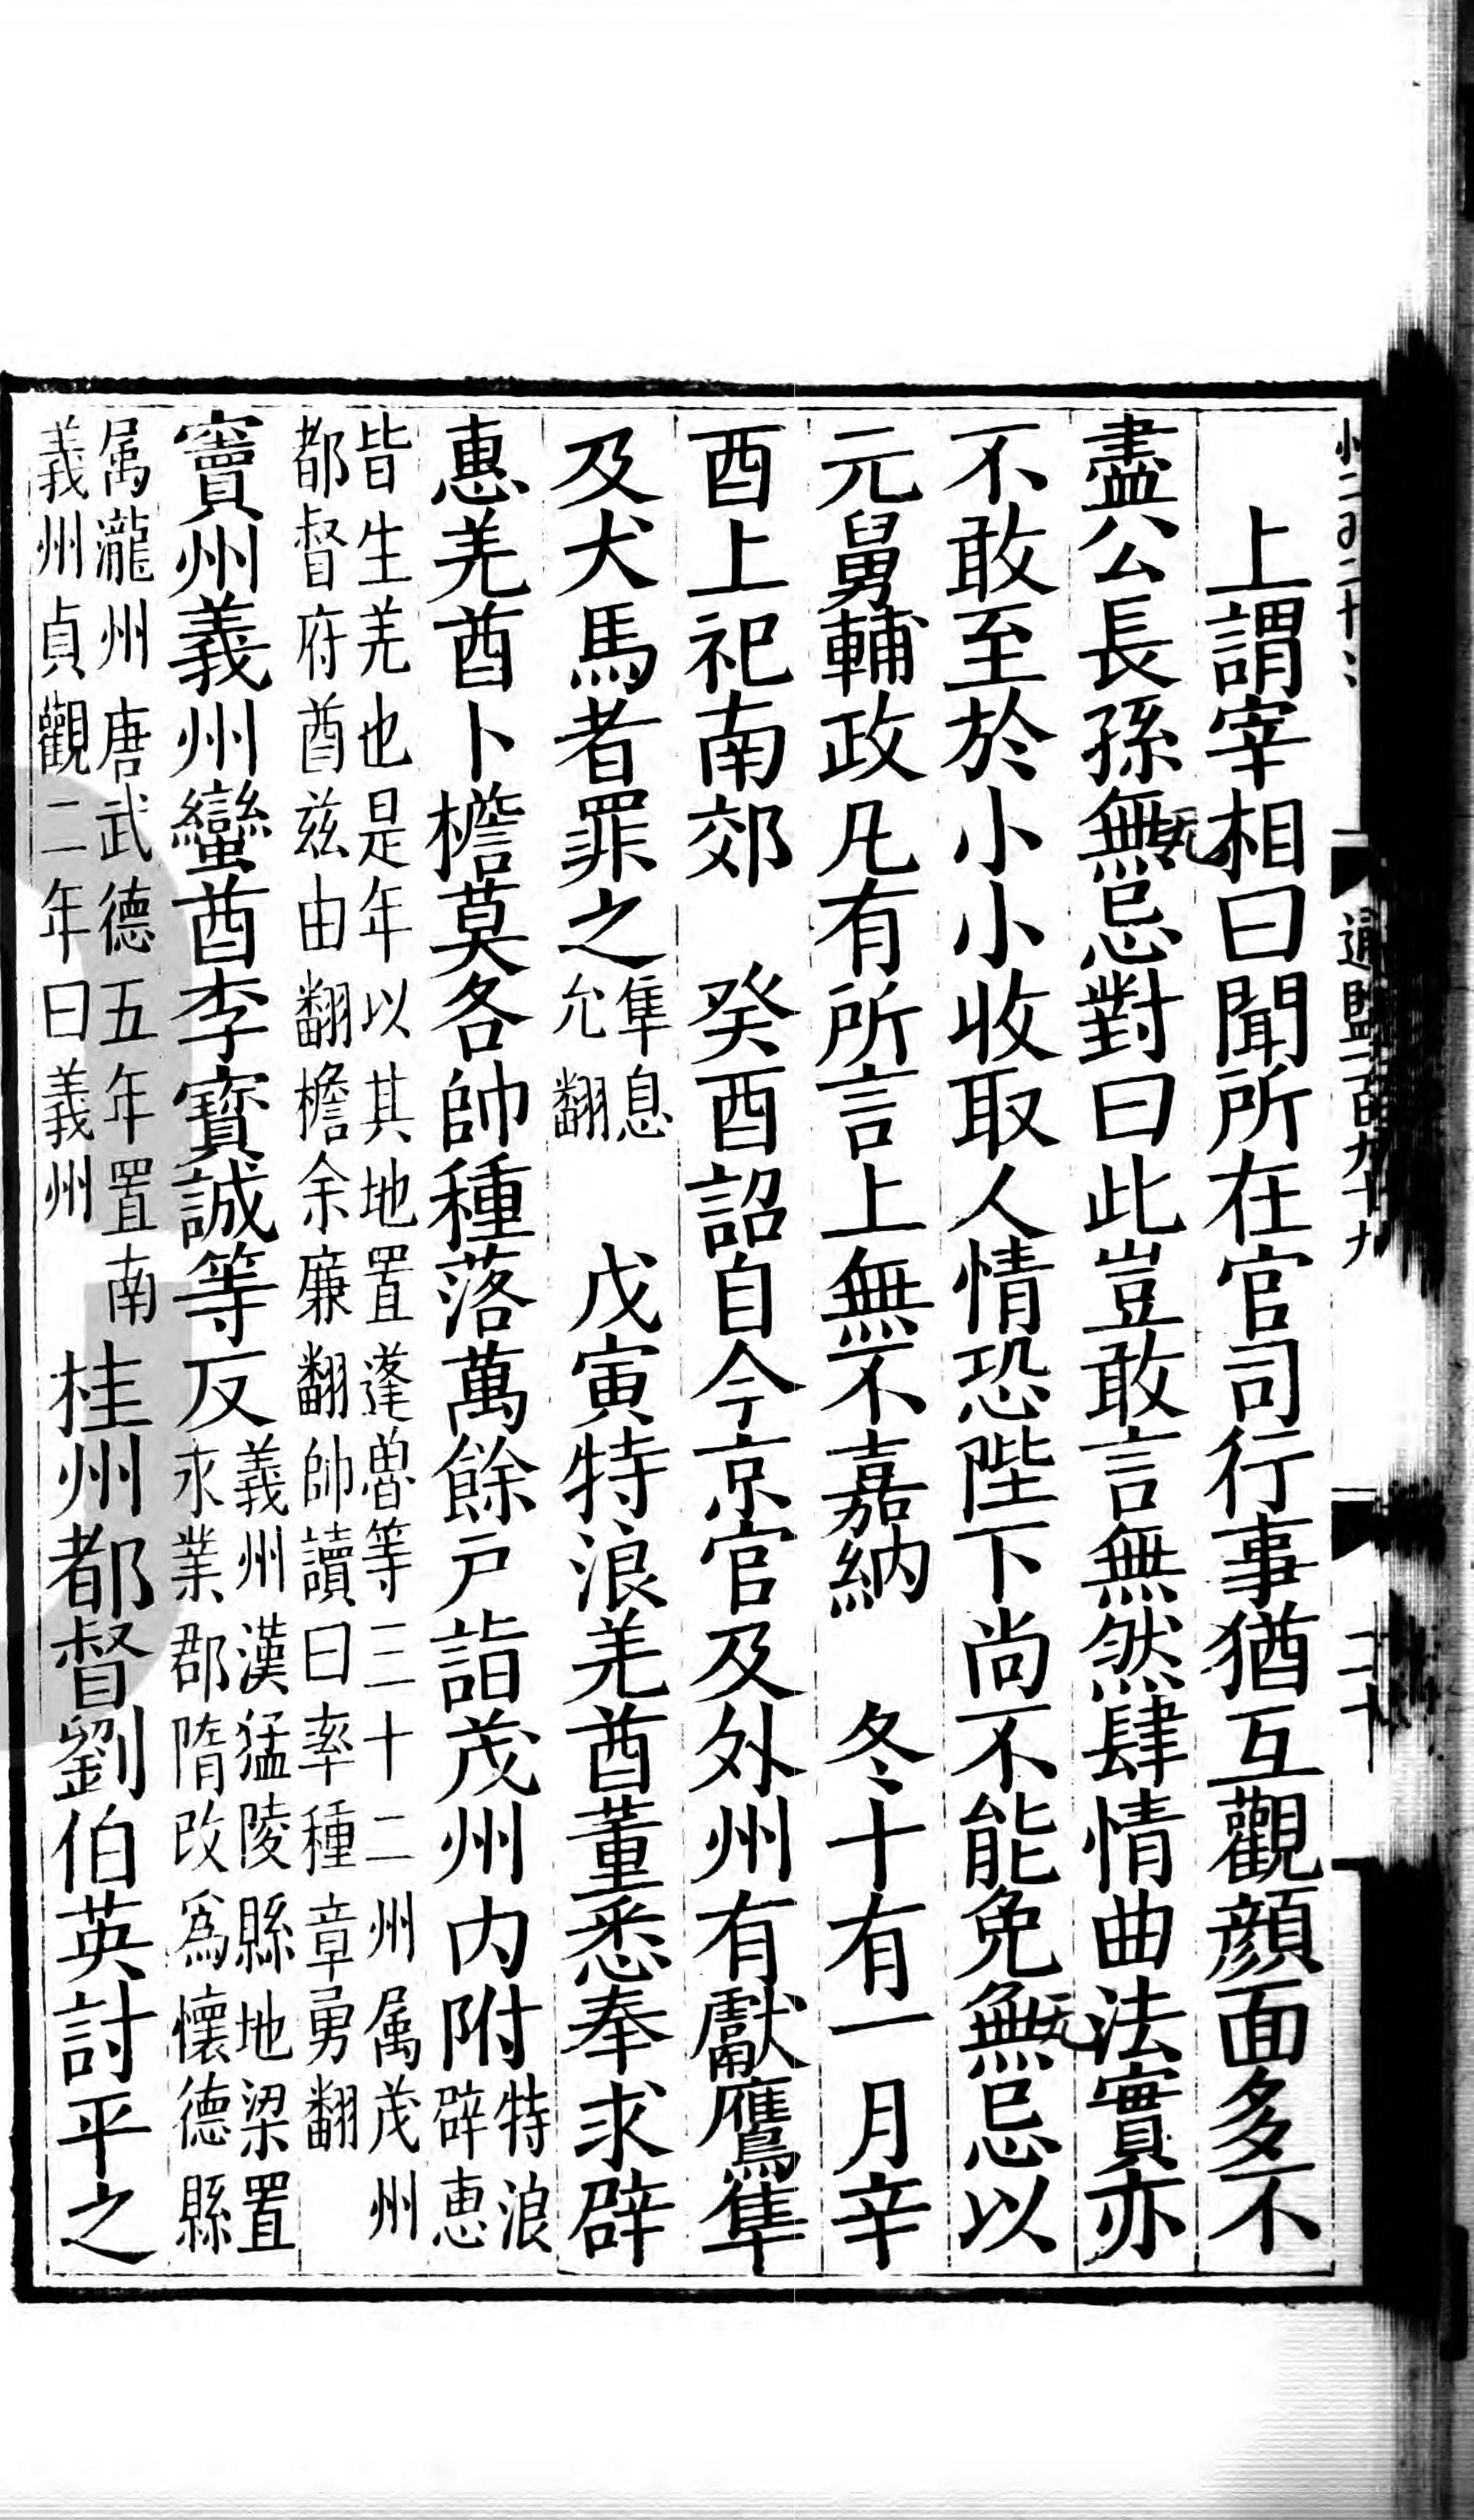 通鑑一百九十九
二十
上謂宰相曰聞所在官司行事猶互觀顔面多不
盡公長孫無忌對曰此豈敢言無然肆情曲法實亦
不敢至於小小收取人情恐陛下尚不能免無忌以
元舅輔政凡有所言上無不嘉納　冬十有一月辛
酉上祀南郊　癸酉詔自今京官及外州有獻鷹隼
及犬馬者罪之隼息允翻　戊寅特浪羌酋董悉奉求辟
惠羌酋卜檐莫各帥種落萬餘戶詣茂州內附特浪辟惠
皆生羌也是年以其地置蓬魯等三十二州属茂州
都督府酋兹由翻檐余廉翻帥讀曰率種章勇翻
竇州義州蠻酋李寶誠等反義州漢猛陵縣地梁置永業郡隋改爲懷德縣
属瀧州唐武德五年置南義州貞觀二年曰義州　桂州都督劉伯英討平之